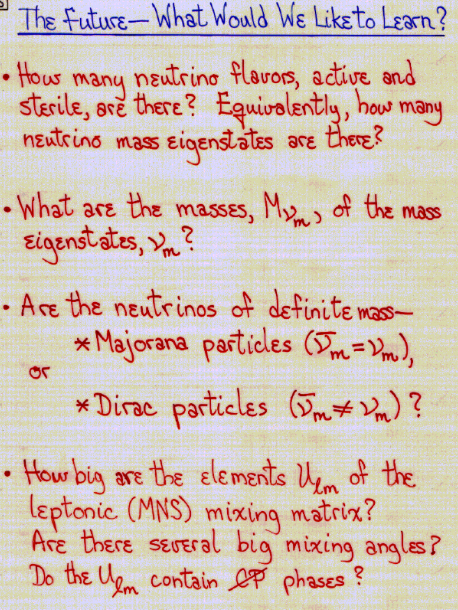 The Future— What Would We Like to Learn?
• How many neutrino flavors, active and
sterile, are there? Equivalently, how many
neutrino mass eigenstates are there?
• What are the masses, M_νm, of the mass
eigenstates, ν_m?
• Are the neutrinos of definite mass—
* Majorana particles (ν̄_m = ν_m),
or
* Dirac particles (ν̄_m ≠ ν_m)?
• How big are the elements U_ℓm of the
leptonic (MNS) mixing matrix?
Are there several big mixing angles?
Do the U_ℓm contain C̸P̸ phases?